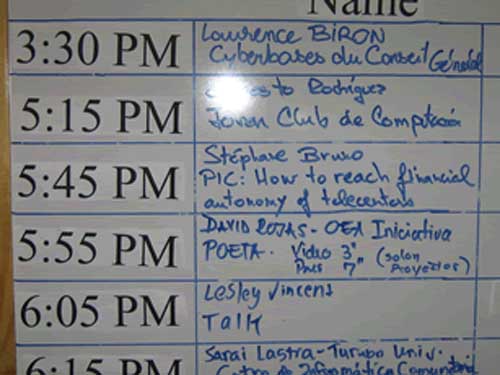 Name
3:30 PM
Lawrence BIRON
Cyberbases du Conseil Général
5:15 PM
Rodríguez
Joven Club de Computación
5:45 PM
Stéphane Bruno
PIC: How to reach financial
autonomy of telecenters
5:55 PM
DAVID ROJAS - OEA Iniciativa
POETA. Video 3"
Pres 7" (salon Proyector)
6:05 PM
Lesley Vincent
Talk
6:15 PM
Sarai Lastra - Turabo Univ.
Centro de Informática Comunitaria